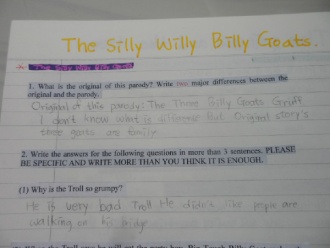 The Silly Willy Billy Goats.
* The Silly Willy Billy Goats
1. What is the original of this parody? Write two major differences between the
original and the parody.
Original of this parody: The Three Billy Goats Gruff
I don't know what is difference but Original story's
three goats are family
2. Write the answers for the following questions in more than 3 sentences. PLEASE
BE SPECIFIC AND WRITE MORE THAN YOU THINK IT IS ENOUGH.
(1) Why is the Troll so grumpy?
He is very bad Troll He didn't like people are
walking on his bridge